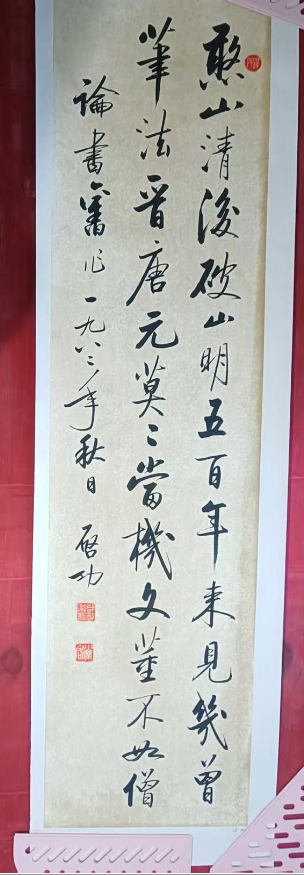 憨山清後破山明五百年來見幾曾
筆法晉唐元莫〻當機文董不如僧
論書舊作一九八二年秋日 啓功